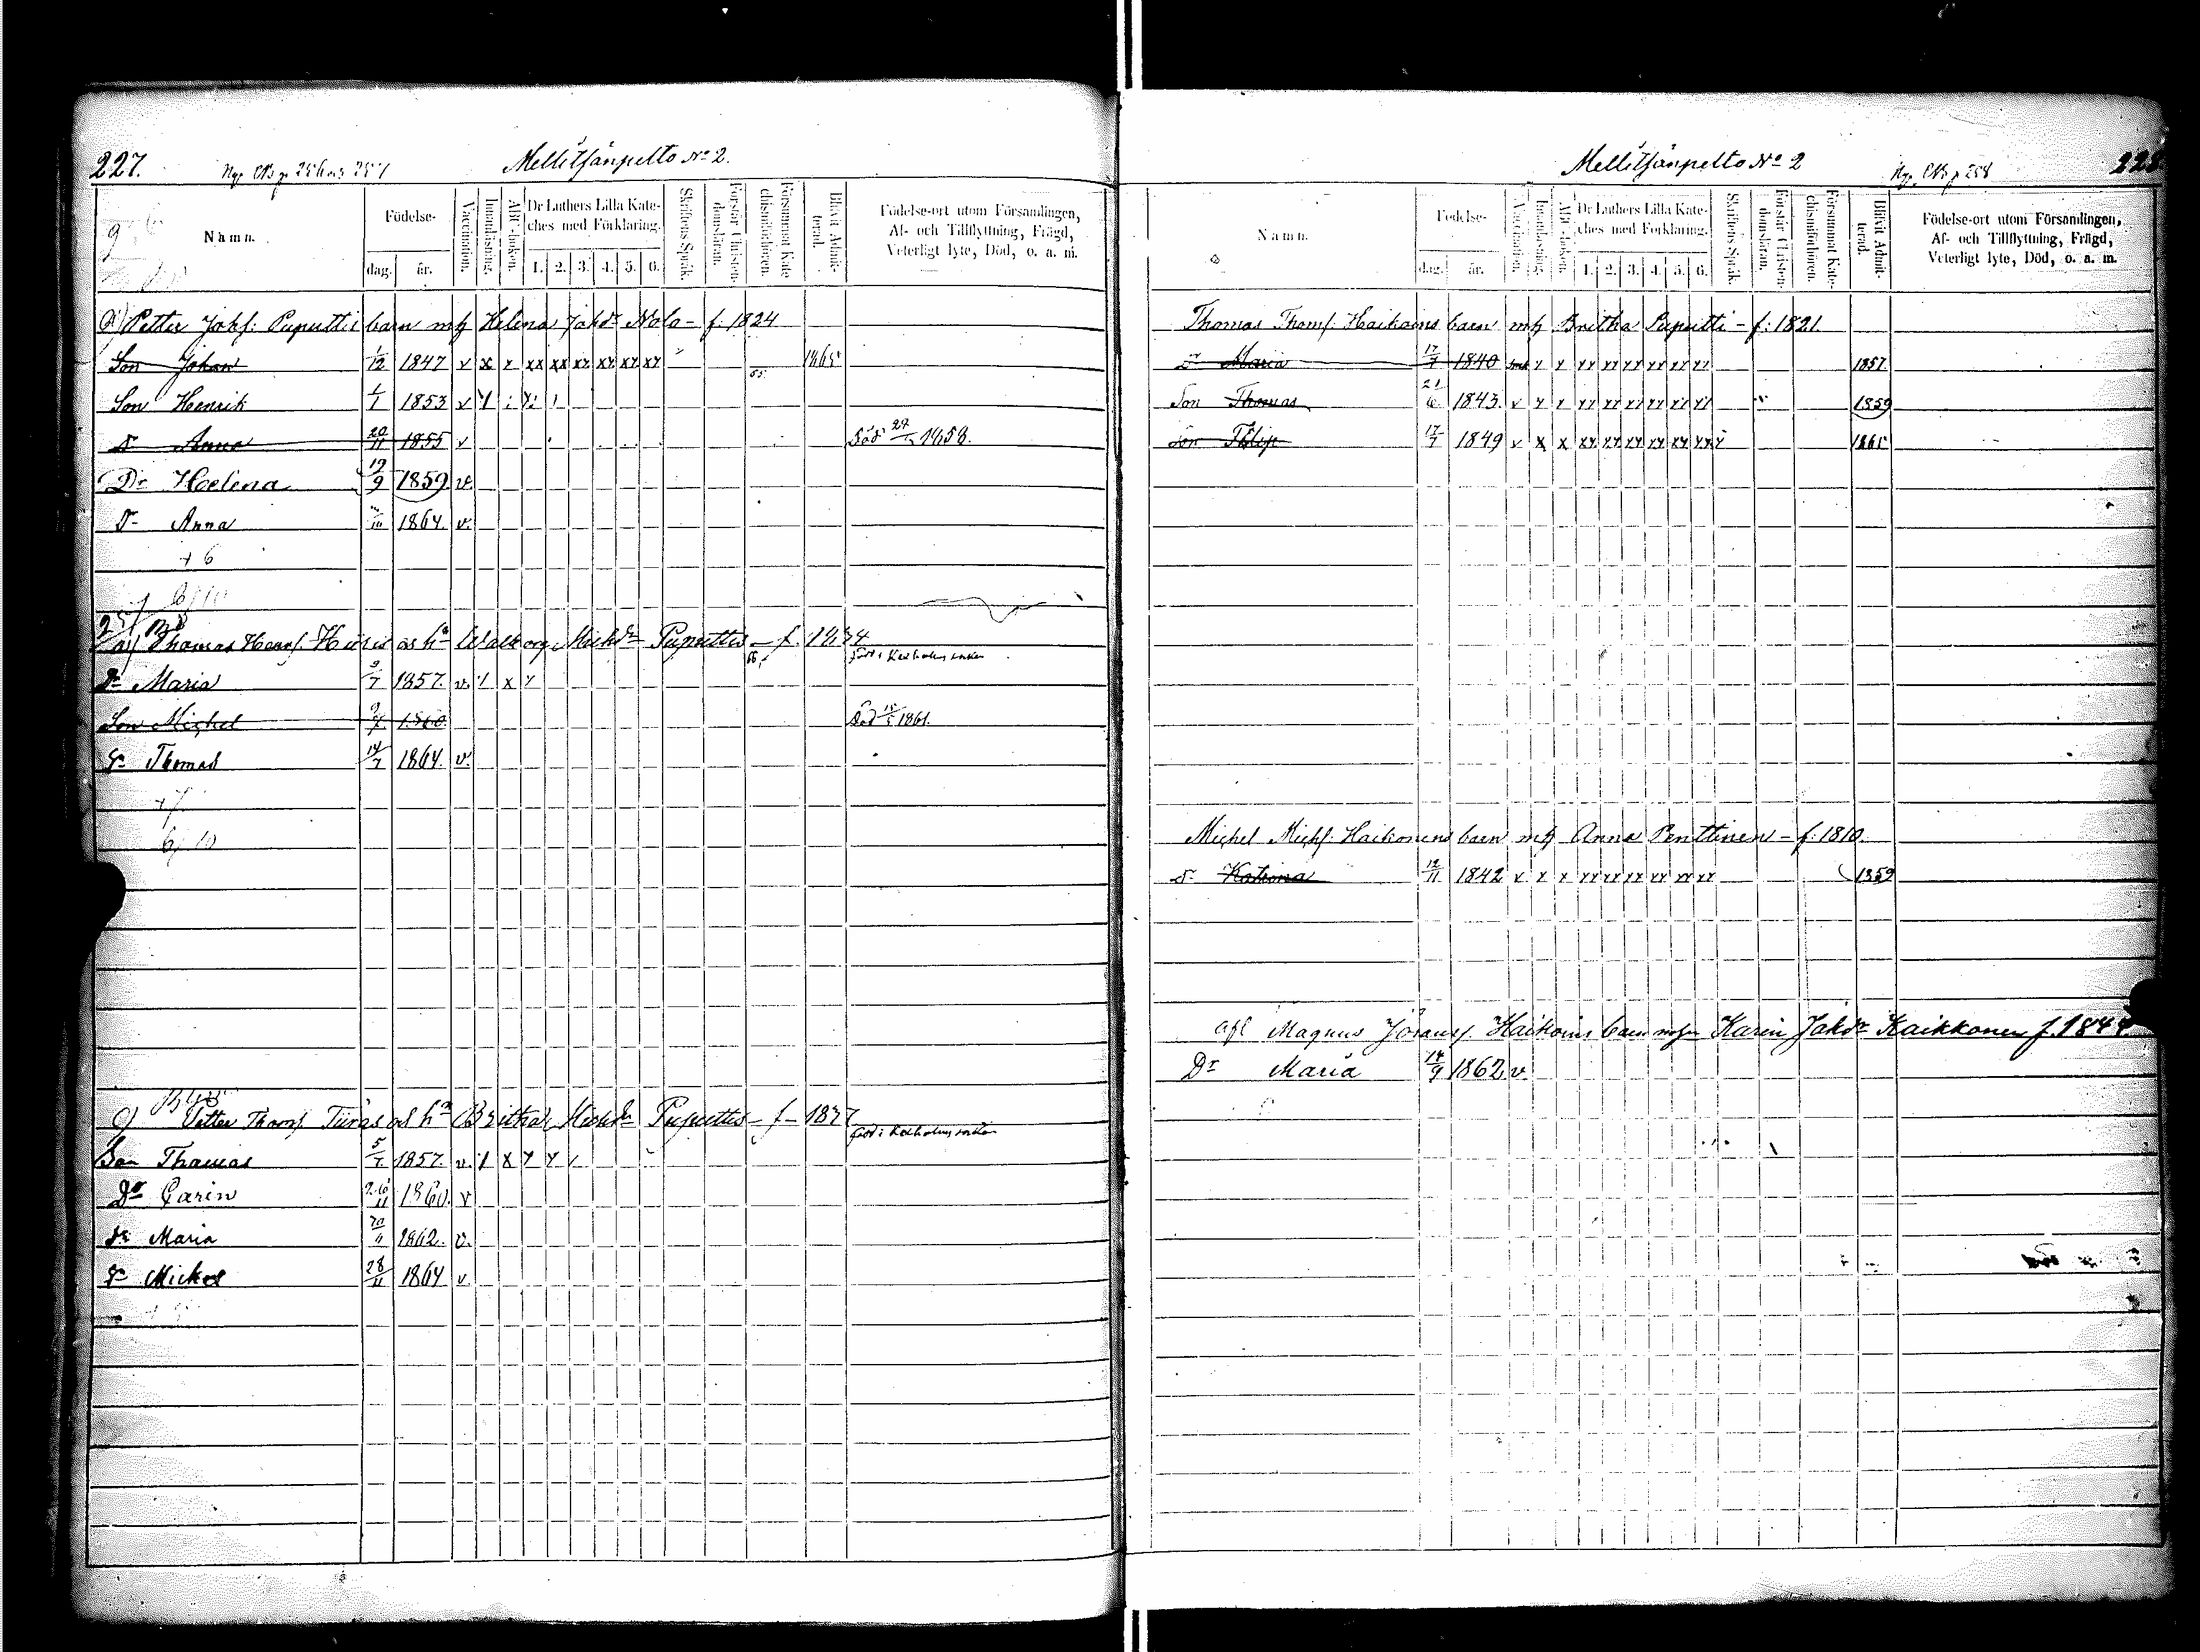 227.
Mellitsänpelto No 2.
Namn.
Födelse-
dag.
år.
Vaccination.
Innanläsning.
ABC-boken.
Dr Luthers Lilla Kate-
ches med Förklaring.
1. 2. 3. 4. 5. 6.
Skriftens Språk.
Förstår Christen-
domsläran.
Försummat Kate-
chismiförhören.
Blifvit Admit-
terad.
Födelse-ort utom Församlingen,
Af- och Tillflyttning, Frägd,
Veterligt lyte, Död, o. a. m.
Petter Johs: Puputtis barn mh Helena Johsdr Nola - f: 1824
Son Johan 1/12 1847 v x x xx xx xx xx xx xx 1865
Son Henrik 1/1 1853 v
dr Anna 20/11 1855 v Död 1858.
Dr Helena 19/9 1859 v.
dr Anna 1864 v.
+ 6
6/10
a) Thomas Henrs. as hu Walborg Michdr Puputtis - f. 1834
född i Kexholms socken
Dr Maria 1857. v. x
Son Michel 1860. Död 1861.
Sn Thomas 14/7 1864. v.
+ 7.
6/10
c) Petter Thoms. as hu Britha Michdr Puputtis - f - 1837
född i Kexholms socken
Son Thomas 5/7 1857. v. x
Dr Carin 26/11 1860. v
dr Maria 1862. v.
Sn Mickel 28/11 1864 v.
Mellitsänpelto No 2
228
Namn.
Födelse-
dag.
år.
Vaccination.
Innanläsning.
ABC-boken.
Dr Luthers Lilla Kate-
ches med Förklaring.
1. 2. 3. 4. 5. 6.
Skriftens Språk.
Förstår Christen-
domsläran.
Försummat Kate-
chismiförhören.
Blifvit Admit-
terad.
Födelse-ort utom Församlingen,
Af- och Tillflyttning, Frägd,
Veterligt lyte, Död, o. a. m.
Thomas Thoms. Haikoins barn mh Britha Puputti - f: 1821
dr Maria 17/7 1840 x x xx xx xx xx xx xx 1857.
Son Thomas 21/6 1843. v x x xx xx xx xx xx xx 1859
Son Filip 17/7 1849 v x x xx xx xx xx xx xx 1865
Michel Michs. Haikonens barn mh Anna Penttinen - f: 1810.
dr Katrina 12/11 1842 v x x xx xx xx xx xx xx 1859
afl Magnus Jöranss. Haikoins barn Karin Jakdr Kaikkonen f. 1844
Dr Maria 14/9 1862 v.